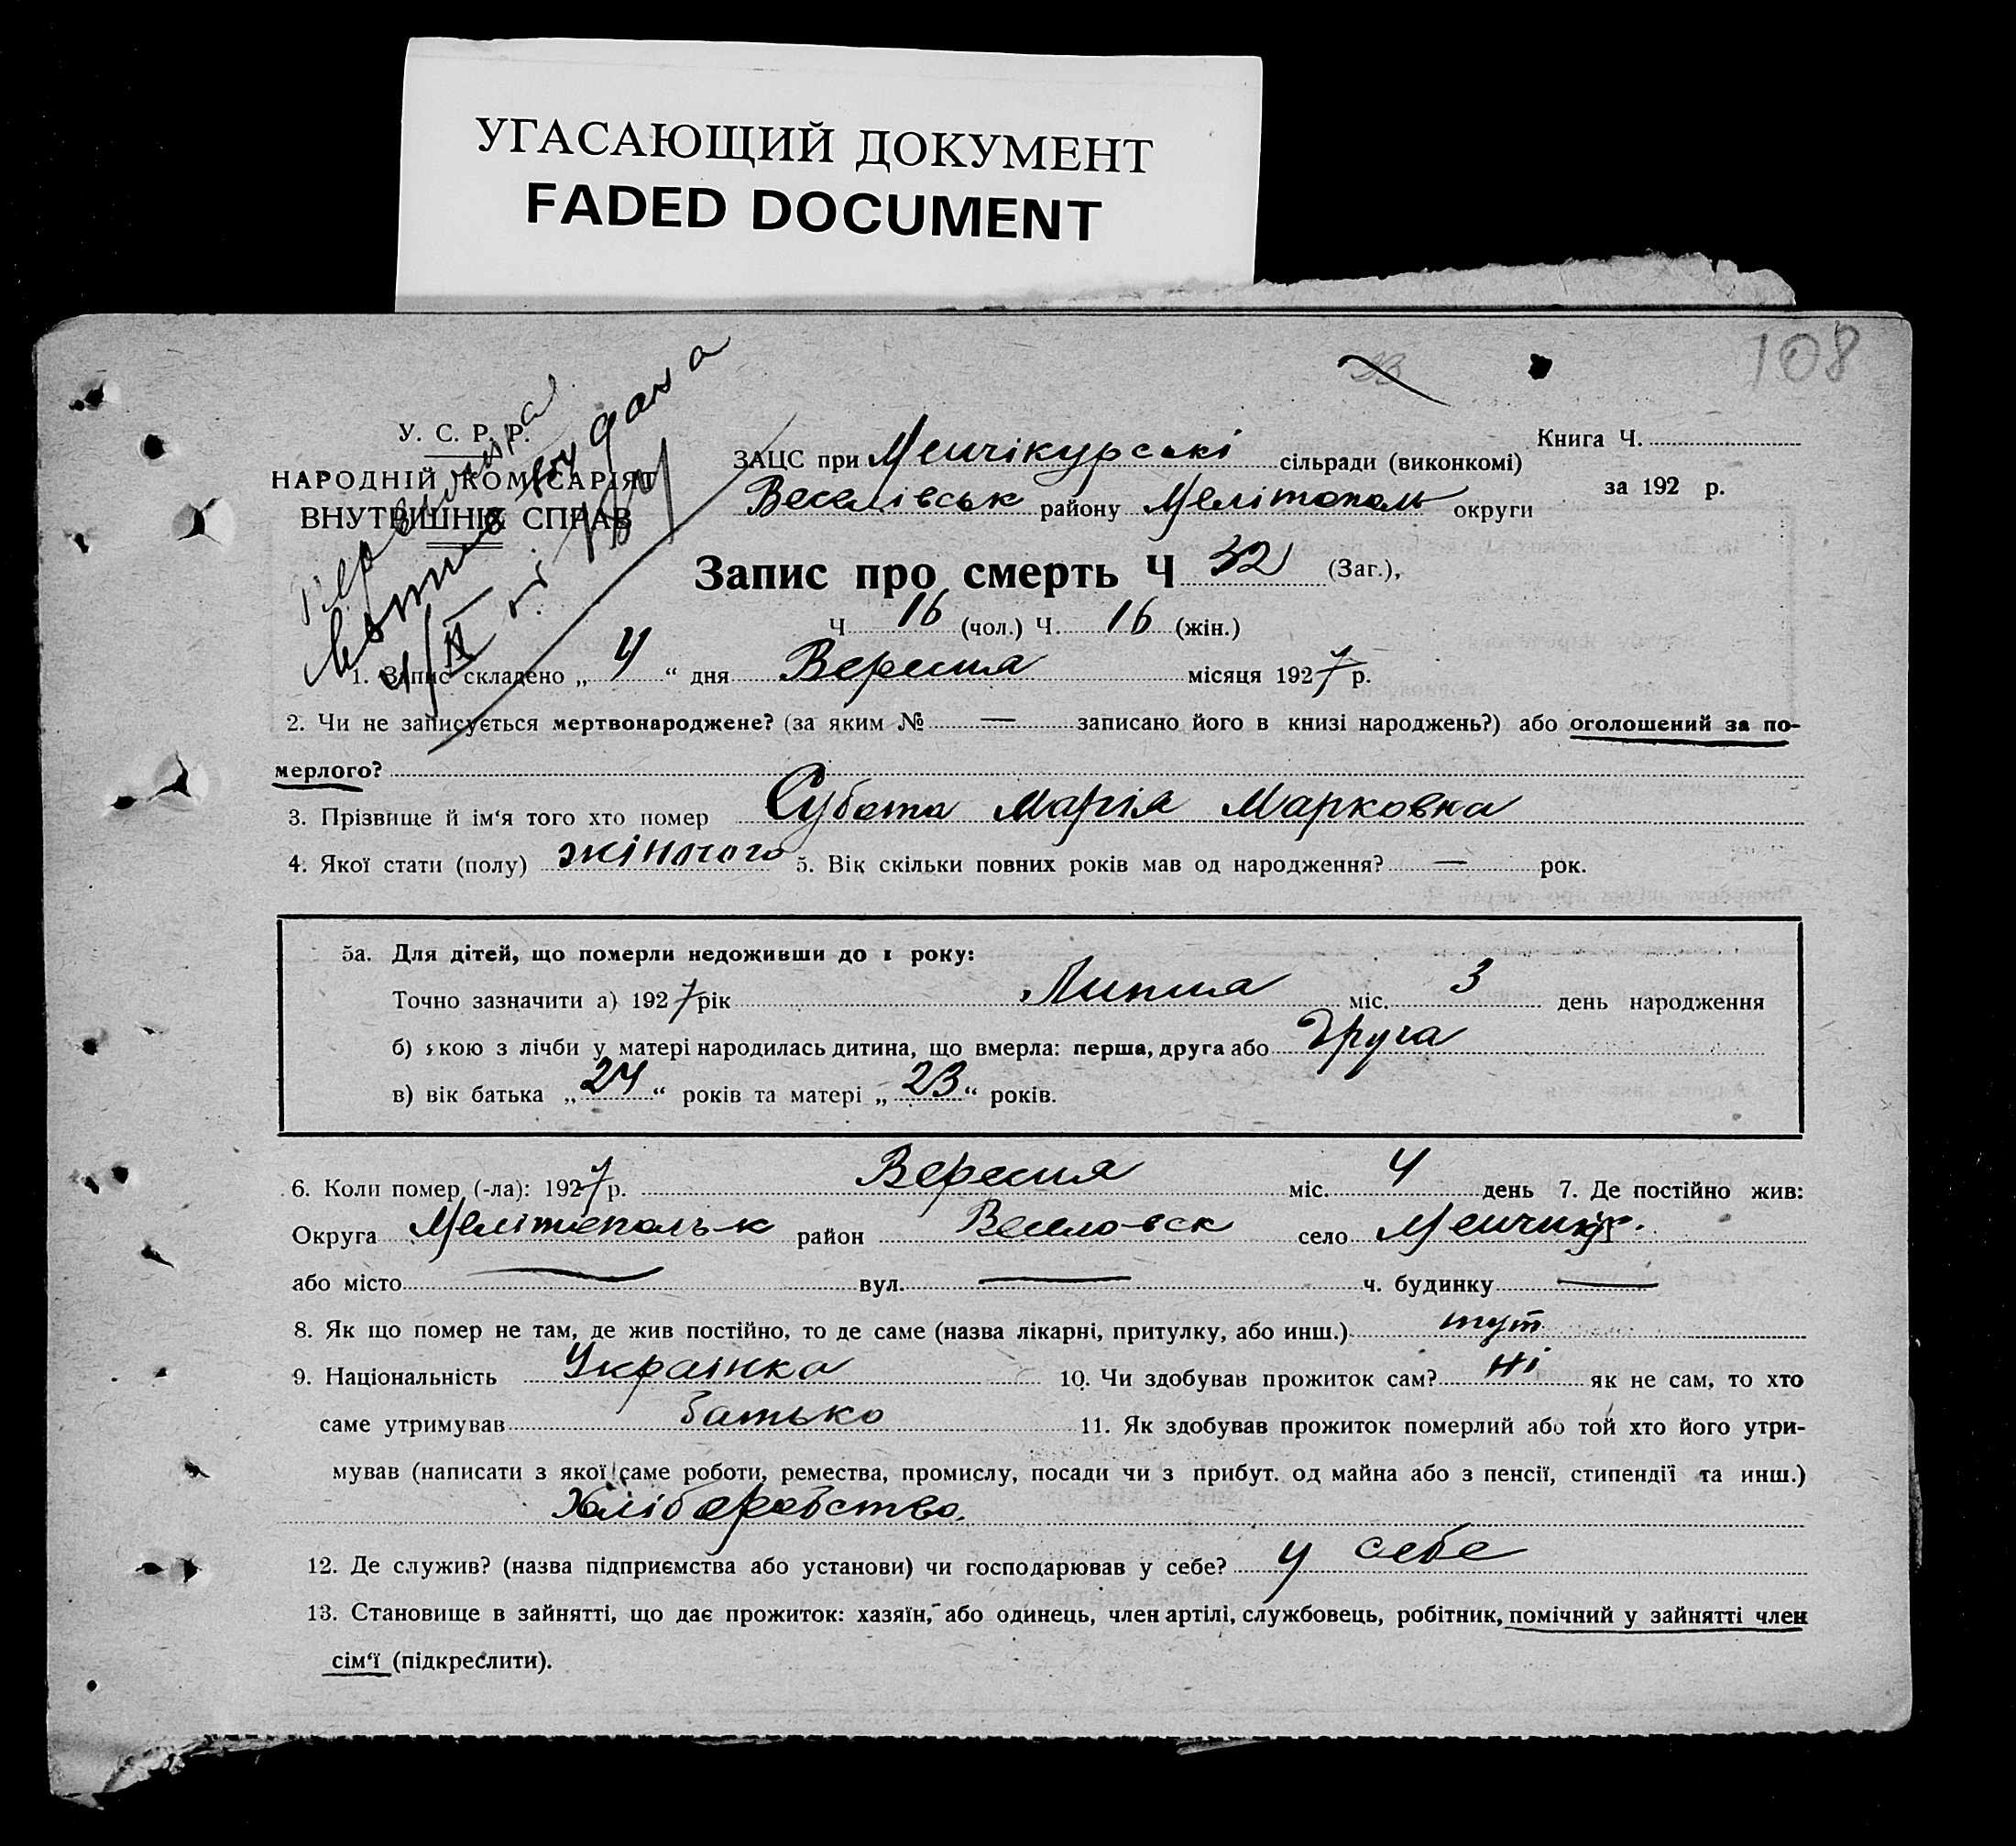 УГАСАЮЩИЙ ДОКУМЕНТ
FADED DOCUMENT
108
33
У. С. Р. Р.
НАРОДНІЙ КОМІСАРІЯТ
ВНУТРІШНІХ СПРАВ
видана
ЗАЦС при Менчікурські сільради (виконкомі)
Книга Ч.
Веселівськ району Мелітополь округи
за 192 р.
Запис про смерть Ч 32 (Заг.),
Ч 16 (чол.) Ч. 16 (жін.)
1. Запис складено „ 4 “ дня Вересня місяця 1927 р.
2. Чи не записується мертвонароджене? (за яким № — записано його в книзі народжень?) або оголошений за по-
мерлого?
3. Прізвище й ім‘я того хто помер Субота Марія Марковна
4. Якої стати (полу) жіночого 5. Вік скільки повних років мав од народження? — рок.
5а. Для дітей, що померли недоживши до 1 року:
Точно зазначити а) 1927 рік Липня міс. 3 день народження
б) якою з лічби у матері народилась дитина, що вмерла: перша, друга або друга
в) вік батька „ 24 “ років та матері „ 23 “ років.
6. Коли помер (-ла): 1927 р. Вересня міс. 4 день 7. Де постійно жив:
Округа Мелітопольк район Веселовск село Менчикур.
або місто — вул. — ч. будинку —
8. Як що помер не там, де жив постійно, то де саме (назва лікарні, притулку, або инш.) тут
9. Національність Українка 10. Чи здобував прожиток сам? Ні як не сам, то хто
саме утримував батько 11. Як здобував прожиток померлий або той хто його утри-
мував (написати з якої саме роботи, ремества, промислу, посади чи з прибут. од майна або з пенсії, стипендії та инш.)
Хліборобство.
12. Де служив? (назва підприємства або установи) чи господарював у себе? у себе
13. Становище в зайнятті, що дає прожиток: хазяїн, або одинець, член артілі, службовець, робітник, помічний у зайнятті член
сім‘ї (підкреслити).